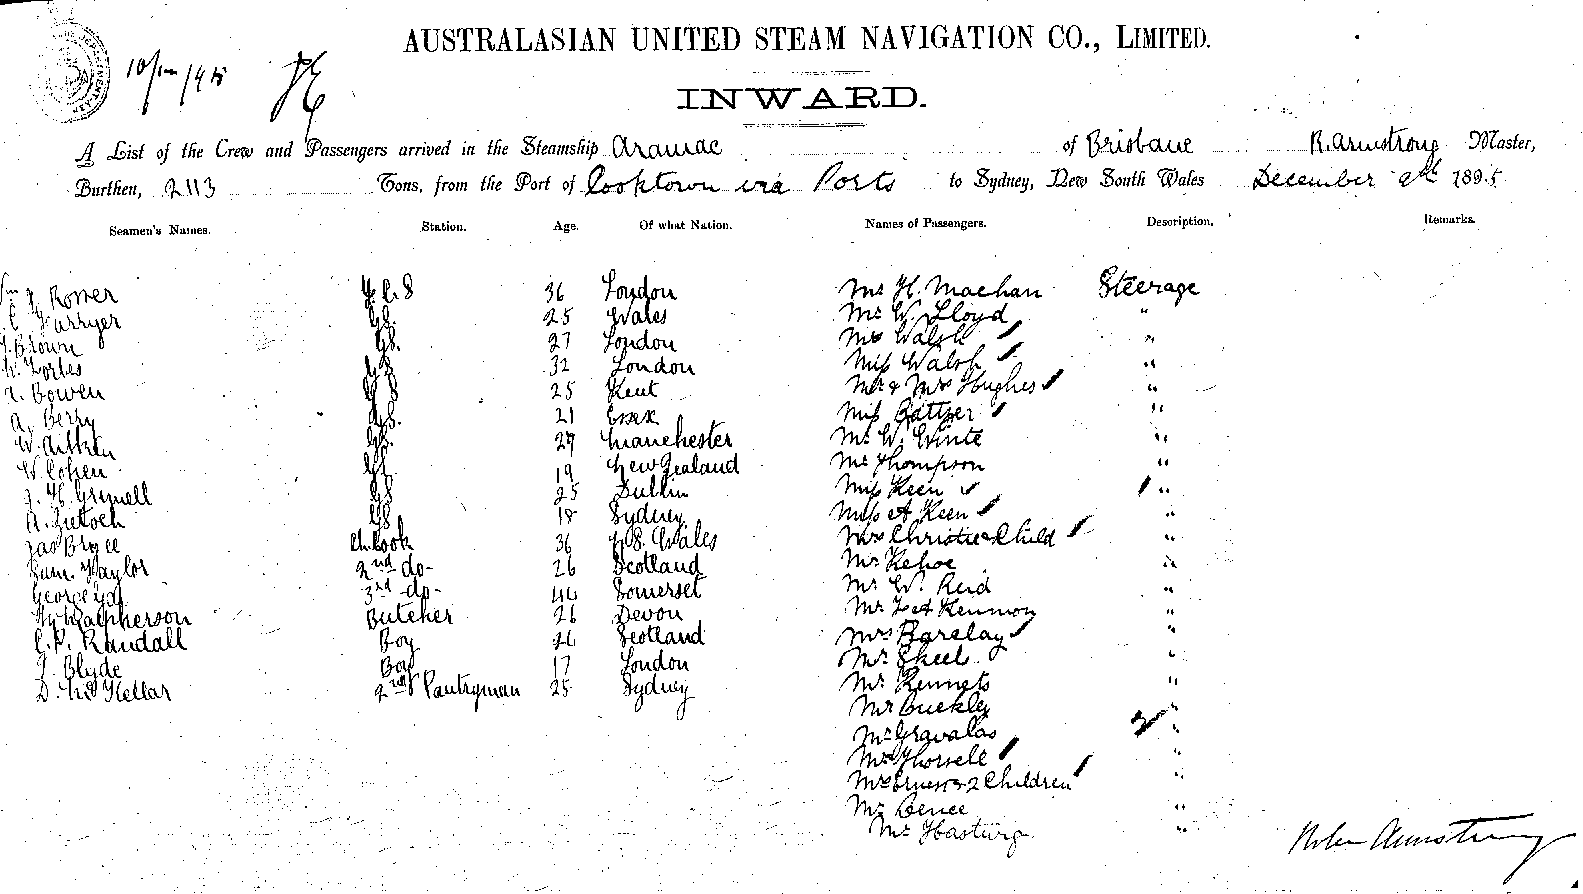 AUSTRALASIAN UNITED STEAM NAVIGATION CO., LIMITED.
INWARD.
A List of the Crew and Passengers arrived in the Steamship Aramac of Brisbane R. Armstrong Master,
Burthen, 2113 Tons, from the Port of Cooktown via Ports to Sydney, New South Wales December 9th 1895
Seamen's Names. Station. Age. Of what Nation. Names of Passengers. Description. Remarks.
36 London Mr H. Machan Steerage
25 Wales Mr W. Lloyd "
Brown GS. 27 London Mrs Walsh "
W. Forbes GS 32 London Miss Walsh "
Bowen GS 25 Kent Mr & Mrs Hughes "
A. Berry GS. 21 Essex Miss "
W. Aitken GS. 29 Manchester Mr W. White "
W. Cohen GS 19 New Zealand Mr Thompson "
J. H. Grinnell GS 25 Dublin Miss Keen "
A. GS 18 Sydney Miss A Keen "
Jas Bryce Ch. Cook 36 N.S. Wales Mrs Christie & Child "
Sam. Taylor 2nd do- 26 Scotland Mr Kehoe "
George 3rd -do- Somerset Mr W. Reid "
Macpherson Butcher 26 Devon Mr "
C. P. Randall Boy Scotland Mrs Barclay "
J. Blyde Boy 17 London Mr Skeel "
D. McKellar 2nd Pantryman 25 Sydney Mr Rennets "
Mr Buckley
Mr Gravalas "
Thorsell "
& 2 Children "
Mr Bence "
Mr Hasting "
Armstrong